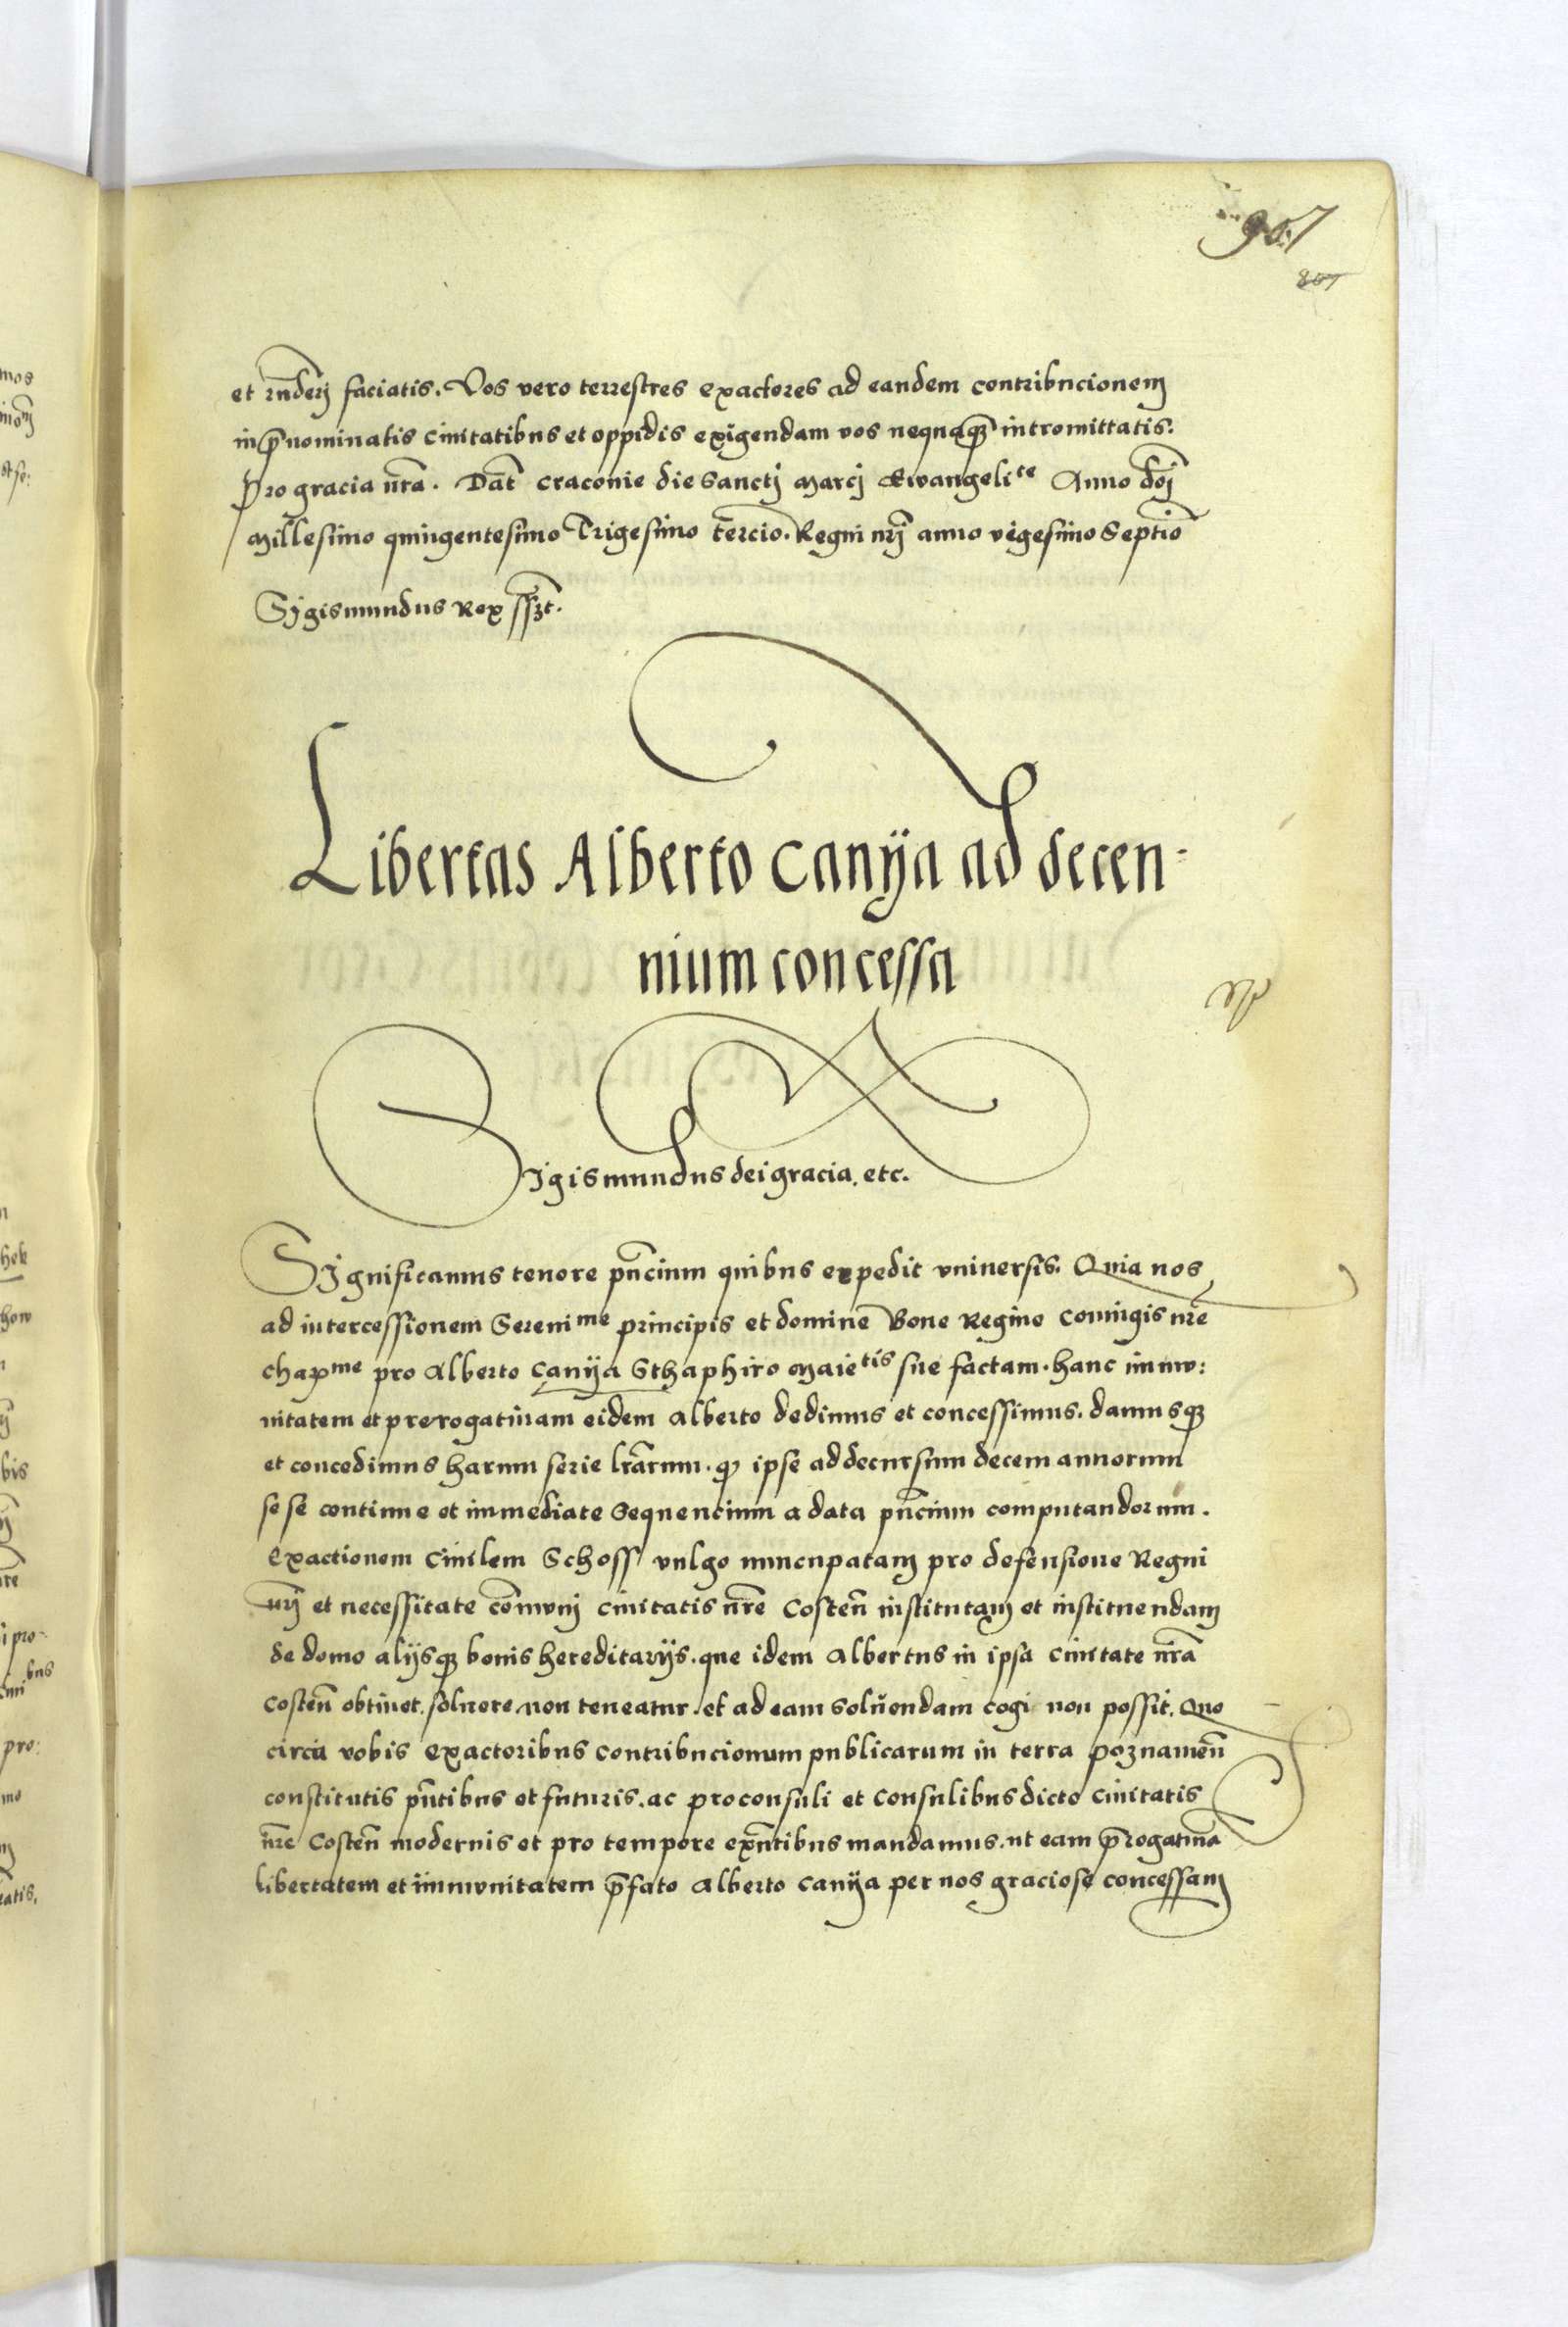 907
807
et rnderj faciatis. Vos vero terrestres exactores ad eandem contribucionem
in prenominatis Civitatibus et oppidis exigendam vos nequaq̃ intromittatis.
Pro gracia nr̃a. Dat̃ Craconie die Sanctj Marcj Ewangeliste Anno dñj
Millesimo quingentesimo Trigesimo tercio. Regni nr̃j anno vigesimo Septĩo
Sygismundus Rex sszt.
Libertas Alberto Canÿa ad decen-
nium concessa
Sigismundus dei gracia. etc.
Significamus tenore pñcium quibus expedit vniuersis. Quia nos
ad intercessionem Serenime principis et domine Bone Regine Coniugis nr̃e
charme pro Alberto Canÿa Sthaphiro Maietis sue factam. hanc immu:
nitatem et prerogatiuam eidem Alberto dedimus et concessimus. damusq̃
et concedimus harum serie lr̃arum. q̃ ipse ad decursum decem annorum
se se continue et immediate Sequencium a data pñcium computandorum.
Exactionem Ciuilem Schoss vulgo nuncupatam pro defensione Regni
nr̃j et necessitate com̃unj Ciuitatis nr̃e Costeñ institutam et instituendam
de domo alijsq̃ bonis hereditarijs. que idem Albertus in ipsa Ciuitate nr̃a
Costeñ obtinet. soluere non teneatur. et ad eam soluendam cogi non possit. Quo
circa vobis Exactoribus contribucionum publicarum in terra Poznanieñ
constitutis pñtibus et futuris. ac proconsuli et Consulibus dicte Ciuitatis
nr̃e Costeñ modernis et pro tempore exñtibus mandamus. ut eam p̃rogatiuã
libertatem et immunitatem p̃fato Alberto Canÿa per nos graciose concessam